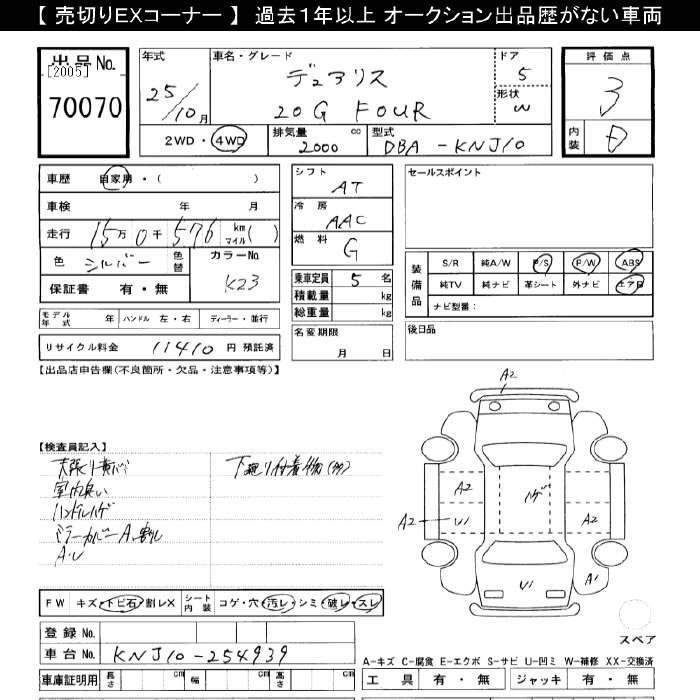 【 売切りEXコーナー 】 過去1年以上 オークション出品歴がない車両
出品 No.
[2005]
70070
年式
25/10月
車名・グレード
デュアリス
20G FOUR
ドア
5
形状
W
評価点
3
内装
D
2WD・4WD
排気量 cc
2000
型式
DBA-KNJ10
車歴 自家用・( )
車検 年 月
走行 15万0千576 km マイル( )
色 シルバー 色替
カラーNo.
K23
保証書 有・無
シフト
AT
冷房
AAC
燃料
G
乗車定員 5 名
積載量 kg
総重量 kg
名変期限
月 日
セールスポイント
装備品
S/R 純A/W P/S P/W ABS
純TV 純ナビ 革シート 外ナビ エアB
ナビ型番:
後日品
モデル年式 年 ハンドル 左・右 ディーラー・並行
リサイクル料金 11410 円 預託済
【出品店申告欄(不良箇所・欠品・注意事項等)】
【検査員記入】
天張り黄バミ 下廻り付着物(多)
室内臭い
ハンドルハゲ
ミラーカバーA、割レ
A・U
A2
A2
ハゲ
A2 U1
A2
U1
A1
スペア
FW キズ・トビ石・割レX シート内装 コゲ・穴・汚レ・シミ・破レ・スレ
登録 No.
車台 No. KNJ10-254939
車庫証明用 長さ cm 幅 cm 高さ cm
A-キズ C-腐食 E-エクボ S-サビ U-凹ミ W-補修 XX-交換済
工具 有・無 ジャッキ 有・無